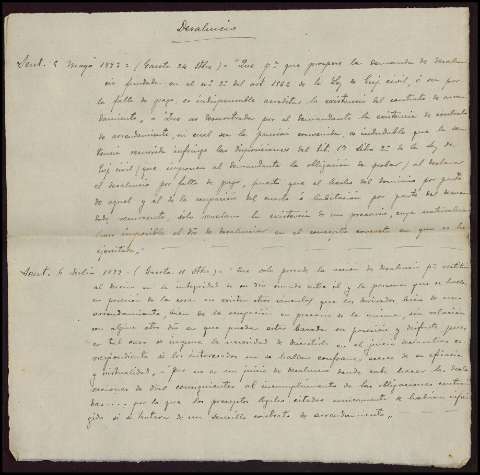 Desahucio
Sent. 5 Mayo 1893 = (Gaceta 24 Stbre) = "Que pª que prospere la demanda de desahu-
cio fundada en el nº 2º del art 1562 de la Ley de Enj civil, ó sea por
la falta de pago es indispensable acreditar la existencia del contrato de arren-
damiento, = "Que no demostrada por el demandante la existencia de contrato
de arrendamiento, ni cual sea la pensión convenida, es indudable que la sen-
tencia recurrida infringe las disposiciones del tit. 17 Libro 2º de la Ley de
Enj civil (que imponen al demandante la obligación de probar) al declarar
el desahucio por falta de pago, puesto que el hecho del dominio por parte
de aquel y el de la ocupación del cuarto ó habitación por parte del deman-
dado recurrente, sólo revelan la existencia de un precario, cuya naturaleza
hace imposible el dro de desahuciar en el concepto concreto en que se ha
ejercitado.
Sent. 6 Julio 1893 = (Gaceta 11 Stbre) = "Que solo procede la acción de desahucio pª restituir
al dueño en la integridad de su dro cuando entre él y la persona que se halla
en posesión de la cosa no existen otros vínculos que los derivados bien de un
arrendamiento, bien de la ocupación en precario de la misma, sin relación
con algun otro dro en que pueda estar basada su posesión y disfrute, pues
en tal caso se impone la necesidad de discutirlo en el juicio declarativo co-
rrespondiente si los interesados no se hallan conformes acerca de su eficacia
y virtualidad, = "Que no es un juicio de desahucio donde cabe hacer las decla-
raciones de dros consiguientes al incumplimiento de las obligaciones conteni-
das.... por lo que los preceptos legales citados únicamente se habrían infrin-
gido si se tratara de un sencillo contrato de arrendamiento."